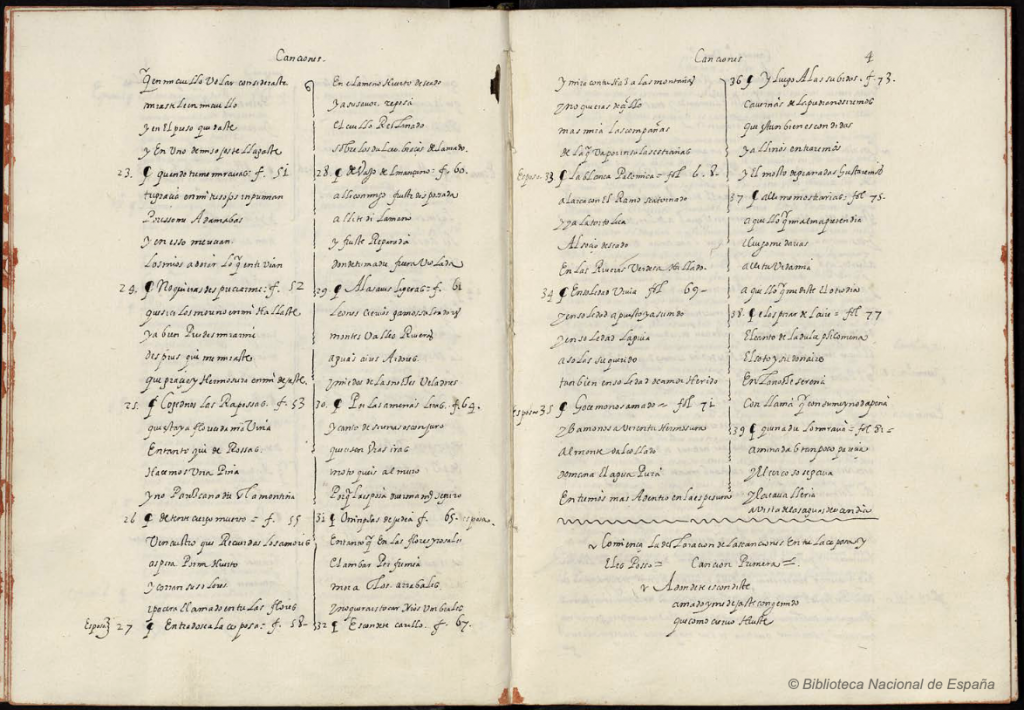 Canciones.
q̃ en mi cuello Volar consideraste
mirastele en mi cuello
y en el preso quedaste
y en Uno de mis ojos te llagaste
23. quando tu me mirauas: f. 51
tu gracia en mi tus ojos inprimian
Por esso me Adamabas
y en esso merecian
los mios adorar lo q̃ en ti vian
24. No quieras despreciarme: f. 52
que si color moreno en mi Hallaste
ya bien Puedes mirarme
despues que me miraste
que gracia y Hermosura en mi dejaste.
25. Cojednos las Raposas. f. 53
que esta ya florecida nra Viña
Entanto que de Rossas
Hacemos Una Piña
y no Parezca nadie en la montiña
26 detente cierço muerto = f. 55
Ven austro que Recuerdas los amores
aspira Por mi Huerto
y corran sus olores
y pacera el amado entre las flores.
Esposo 27 Entradose a la esposa = f. 58-
En el ameno Huerto deseado
y a su sauor reposa
el cuello Reclinado
sobre los dulces braços del amado.
28. debajo del mançano: f. 60.
alli conmigo fuiste desposada
alli te di la mano
y fuiste Reparada
donde tu madre fuera Violada
29. A las aues ligeras = f. 61
leones cieruos gamos saltadores
montes Valles Riueras
aguas aires Ardores
y miedos de las noches Veladores
30. Por las amenas liras. f. 64.
y canto de serenas os conjuro
que cesen Vras iras
y no toqueis al muro
Porq̃ la esposa duerma mas seguro
31 O ninphas de judea f. 65. esposa.
Entanto q̃ En las flores y rosales
El ambar Perfumea
mora en los arrabales
y no querais tocar Nros Umbrales
32 Escondete carillo. f. 67.
Canciones 4
y mira con tu Haz a las montañas
y no quieras decillo
mas mira las compañas
de la q̃ va por insulas estrañas
Esposo 33 La blanca Palomica = fol 68.
al arca con el Ramo se a tornado
y ya la tortolica
Al socio deseado
En las Riueras Verdes a Hallado.
34 En soledad Viuia fol 69-
y en soledad a puesto ya su nido
y en soledad la guia
a solas su querido
tambien en soledad de amor Herido
Esposa 35 Gocemonos amado - fol 71
y Bamonos a ver en tu Hermosura
al monte o al collado
do mana el agua Pura
Entremos mas Adentro en la espesura
36 Y luego A las subidas. f. 73.
Cauernas de la piedra nos iremos
que estan bien escondidas
y alli nos entraremos
y el mosto de granadas Gustaremos
37 alli me mostrarias. fol 75.
aquello q̃ mi alma pretendia
y luego me darias
alli tu Vida mia
aquello q̃ me diste el otro dia
38. el aspirar de el aire = fol 77
El canto de la dulce philomena
El soto y su donaire
En la noche serena
Con llama q̃ consume y no da pena
39 que nadie lo miraua = fol 81-
aminadab tanpoco parecia
y el cerco sosegaua
y la caualleria
a vista de las aguas decendia
Comiença la declaracion de las canciones Entre la esposa y
El esposo = Cancion Primera =.
Adonde te escondiste
amado y me dejaste con gemido
que como cieruo Huiste
© Biblioteca Nacional de España